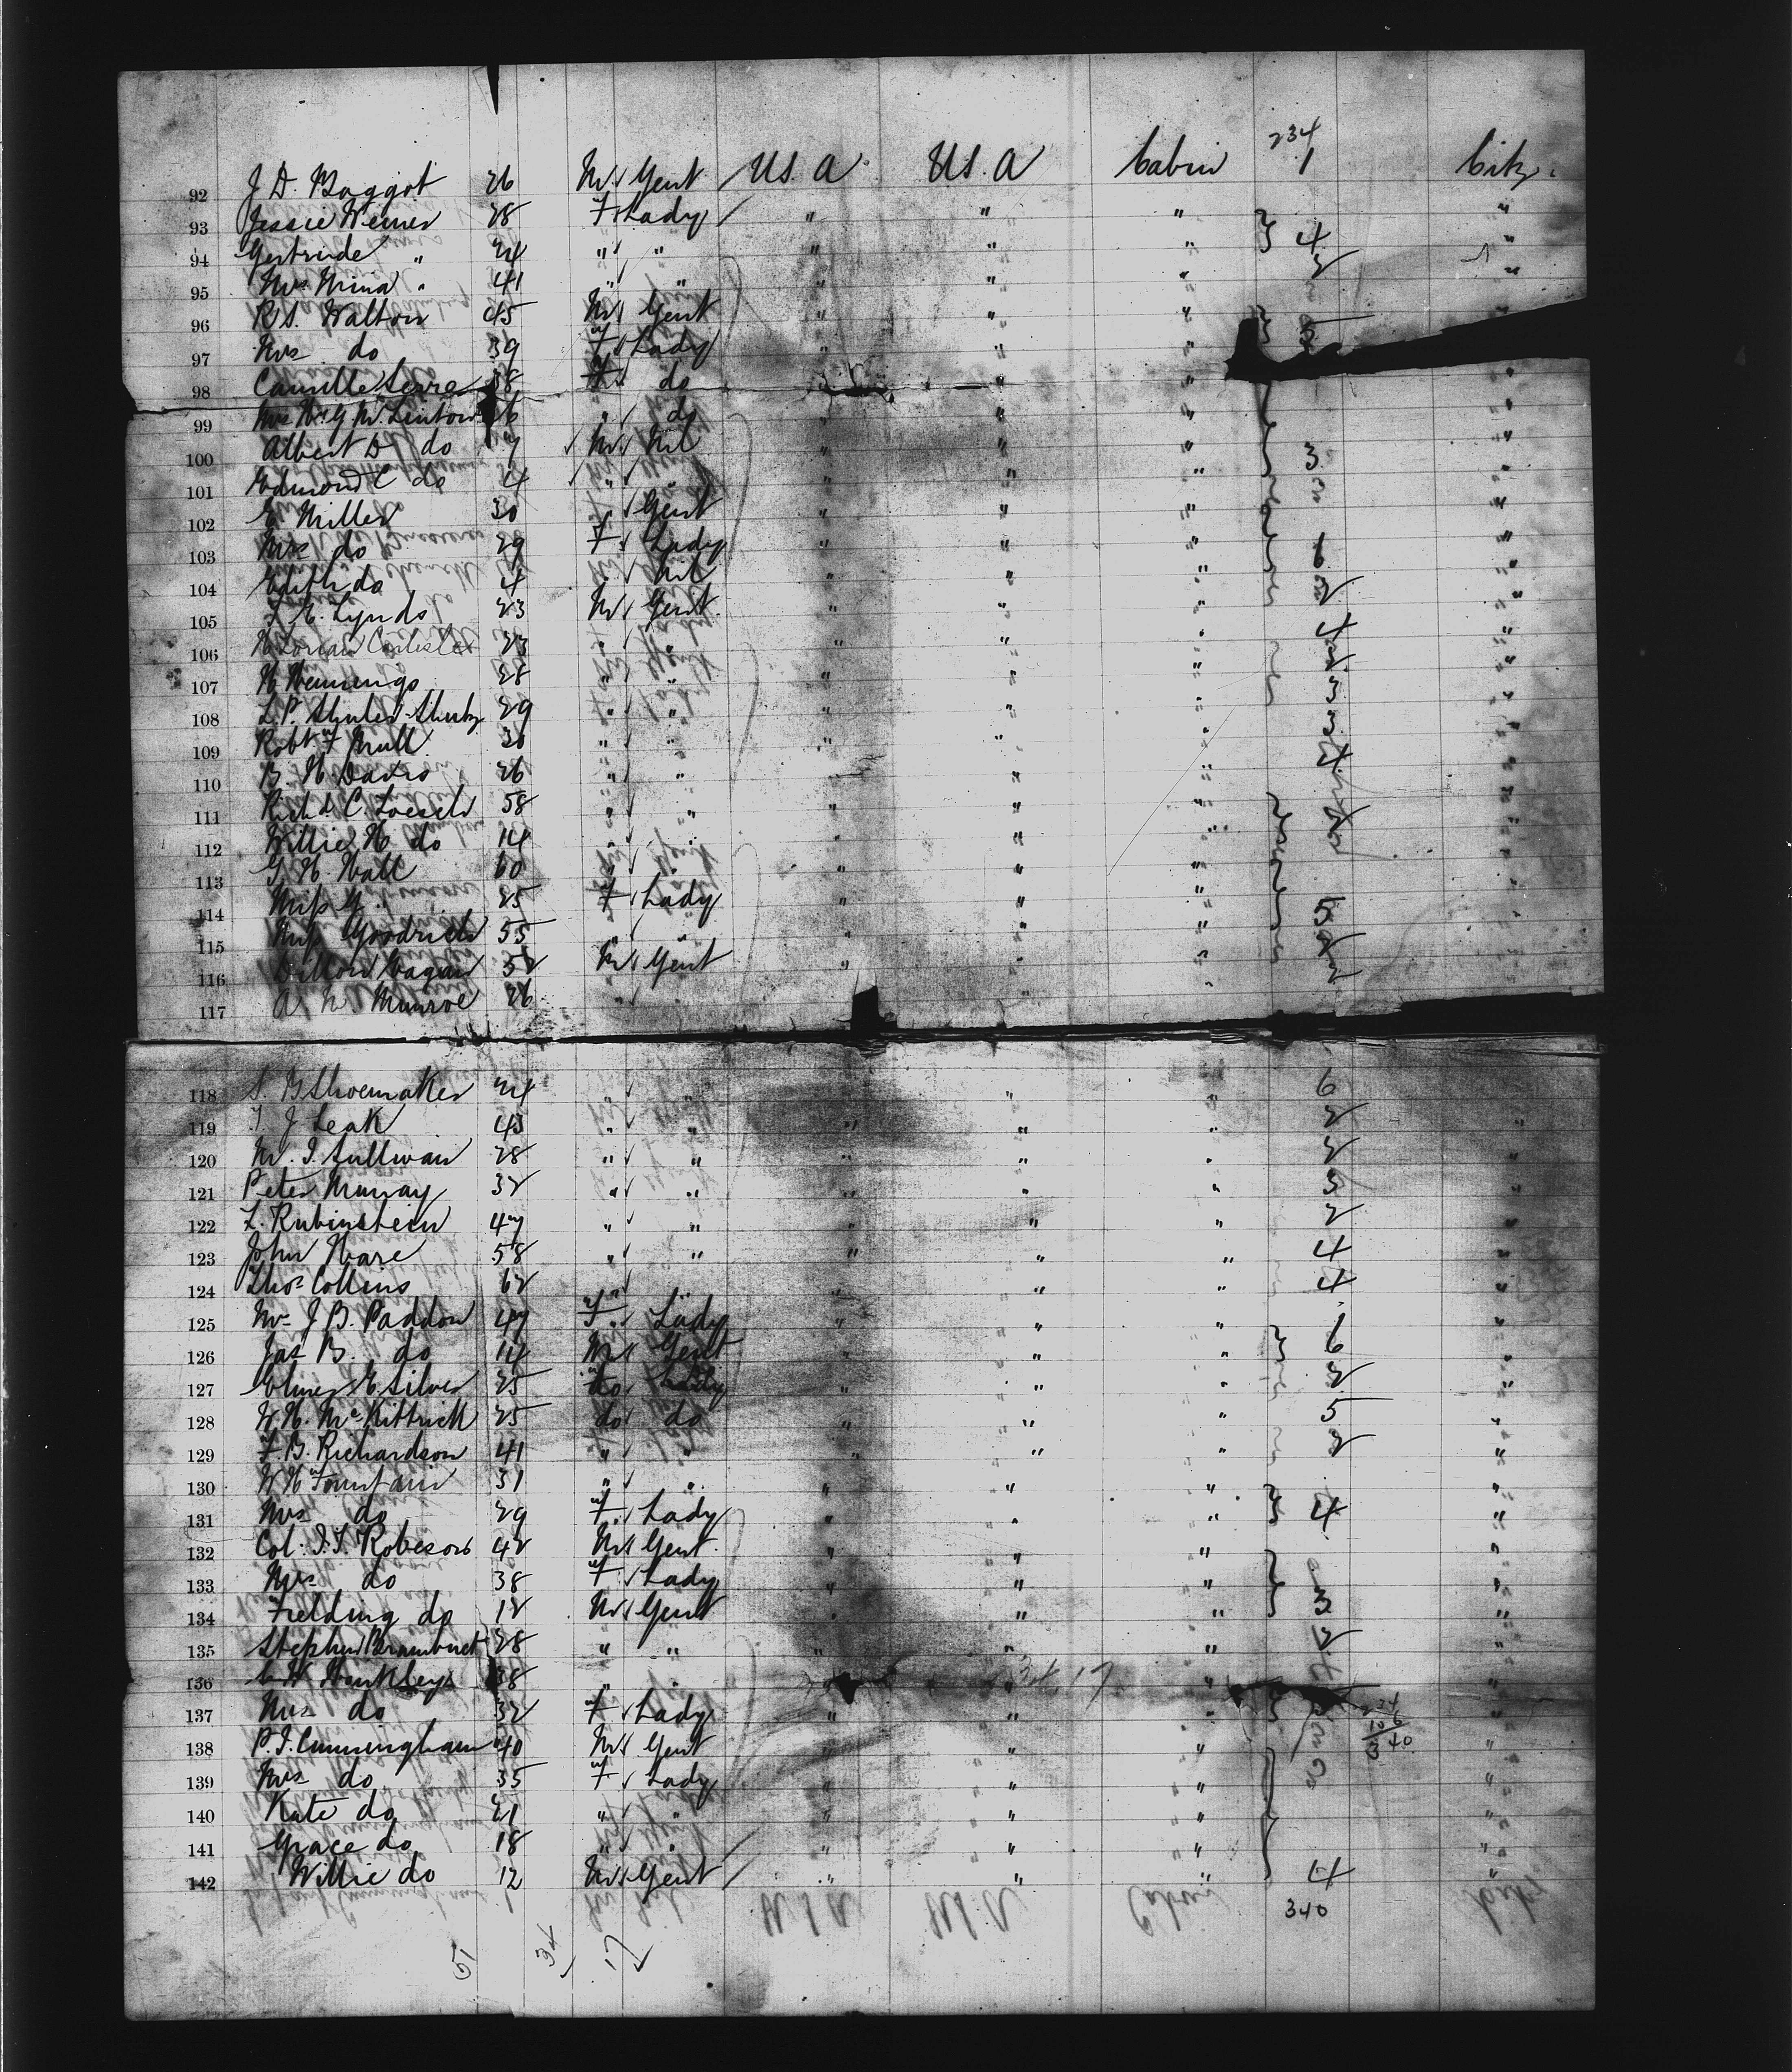 234
92 J. D. Baggot 26 M. Gent U.S.A U.S.A Cabin 1 Citz.
93 Jessie Weiner 28 F Lady " " " "
94 Gertrude " 24 " " " " " 4 "
95 Mrs Mina " 41 " " " " 2 "
96 R S. Walton 45 M Gent " " "
97 Mrs do 39 F Lady " " " 5
98 Camille Serra 38 F do " " "
99 Mrs W. G. M. Linton 6 " do " " " "
100 Albert D do 7 M Nil " " " "
101 Edmond C do 4 " " " " " 3 "
102 E. Miller 30 " Gent " " " "
103 Mrs do 29 F Lady " " " "
104 Edith do 4 " Nil " " " 6 "
105 F. E. Lynds 23 M Gent " " " 2 "
106 23 " " " " 4 "
107 H Hennings 28 " " " " " 2 "
108 L. P. 29 " " " " " 3 "
109 Robt. F Mull 30 " " " " " 3 "
110 B. H. Davis 26 " " " " 4 "
111 Rich d C. Loesch 58 " " " " " "
112 Willie H do 14 " " " " 2 "
113 G. H. Hall 60 " " " " "
114 Miss G. " 25 F Lady " " " "
115 Miss Goodrich 55 " " " " 5 "
116 Dillon 52 M Gent " " " 2
117 A. W. Munroe 26 " " " " 2
118 S. B Shoemaker 24 " " " " 6
119 T. J Leak 43 " " " " " 2 "
120 M. J. Sullivan 28 " " " " " 2 "
121 Peter Murray 32 " " " " " 3 "
122 Z. Rubinstein 47 " " " " " 2 "
123 John Hare 58 " " " " " 4 "
124 Thos Collins 62 " " " " 4 "
125 Mrs J B. Paddon 47 F. Lady " " " "
126 Jas B. do 14 M Gent " " " 6 "
127 Elmer E. Silver 25 do " " " 2 "
128 W. H. McKittrick 25 do do " " " 5 "
129 F. B. Richardson 41 " " " " " 2 "
130 W H Fountain 31 " " " " " "
131 Mrs do 29 F. Lady " " " 4 "
132 Col: J. T. Robeson 42 M Gent. " " " "
133 Mrs do 38 F. Lady " " " "
134 Fielding do 12 M Gent " " " 3 "
135 Stephen 28 " " " " " 2 "
136 38 " " " " "
137 Mrs do 32 F Lady " " " "
234
106
340
138 P. J. Cunningham 40 M Gent " " " "
139 Mrs do 35 F Lady " " " "
140 Kate do 21 " " " " " "
141 Grace do 18 " " " " " "
142 Willie do 12 M Gent " " " 4 "
340
51 34 17